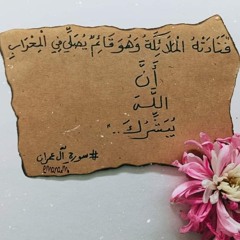 فَنَادَتْهُ الْمَلَائِكَةُ وَهُوَ قَائِمٌ يُصَلِّي فِي الْمِحْرَابِ
أَنَّ
اللَّهَ
يُبَشِّرُكَ..
#سورة آل عمران